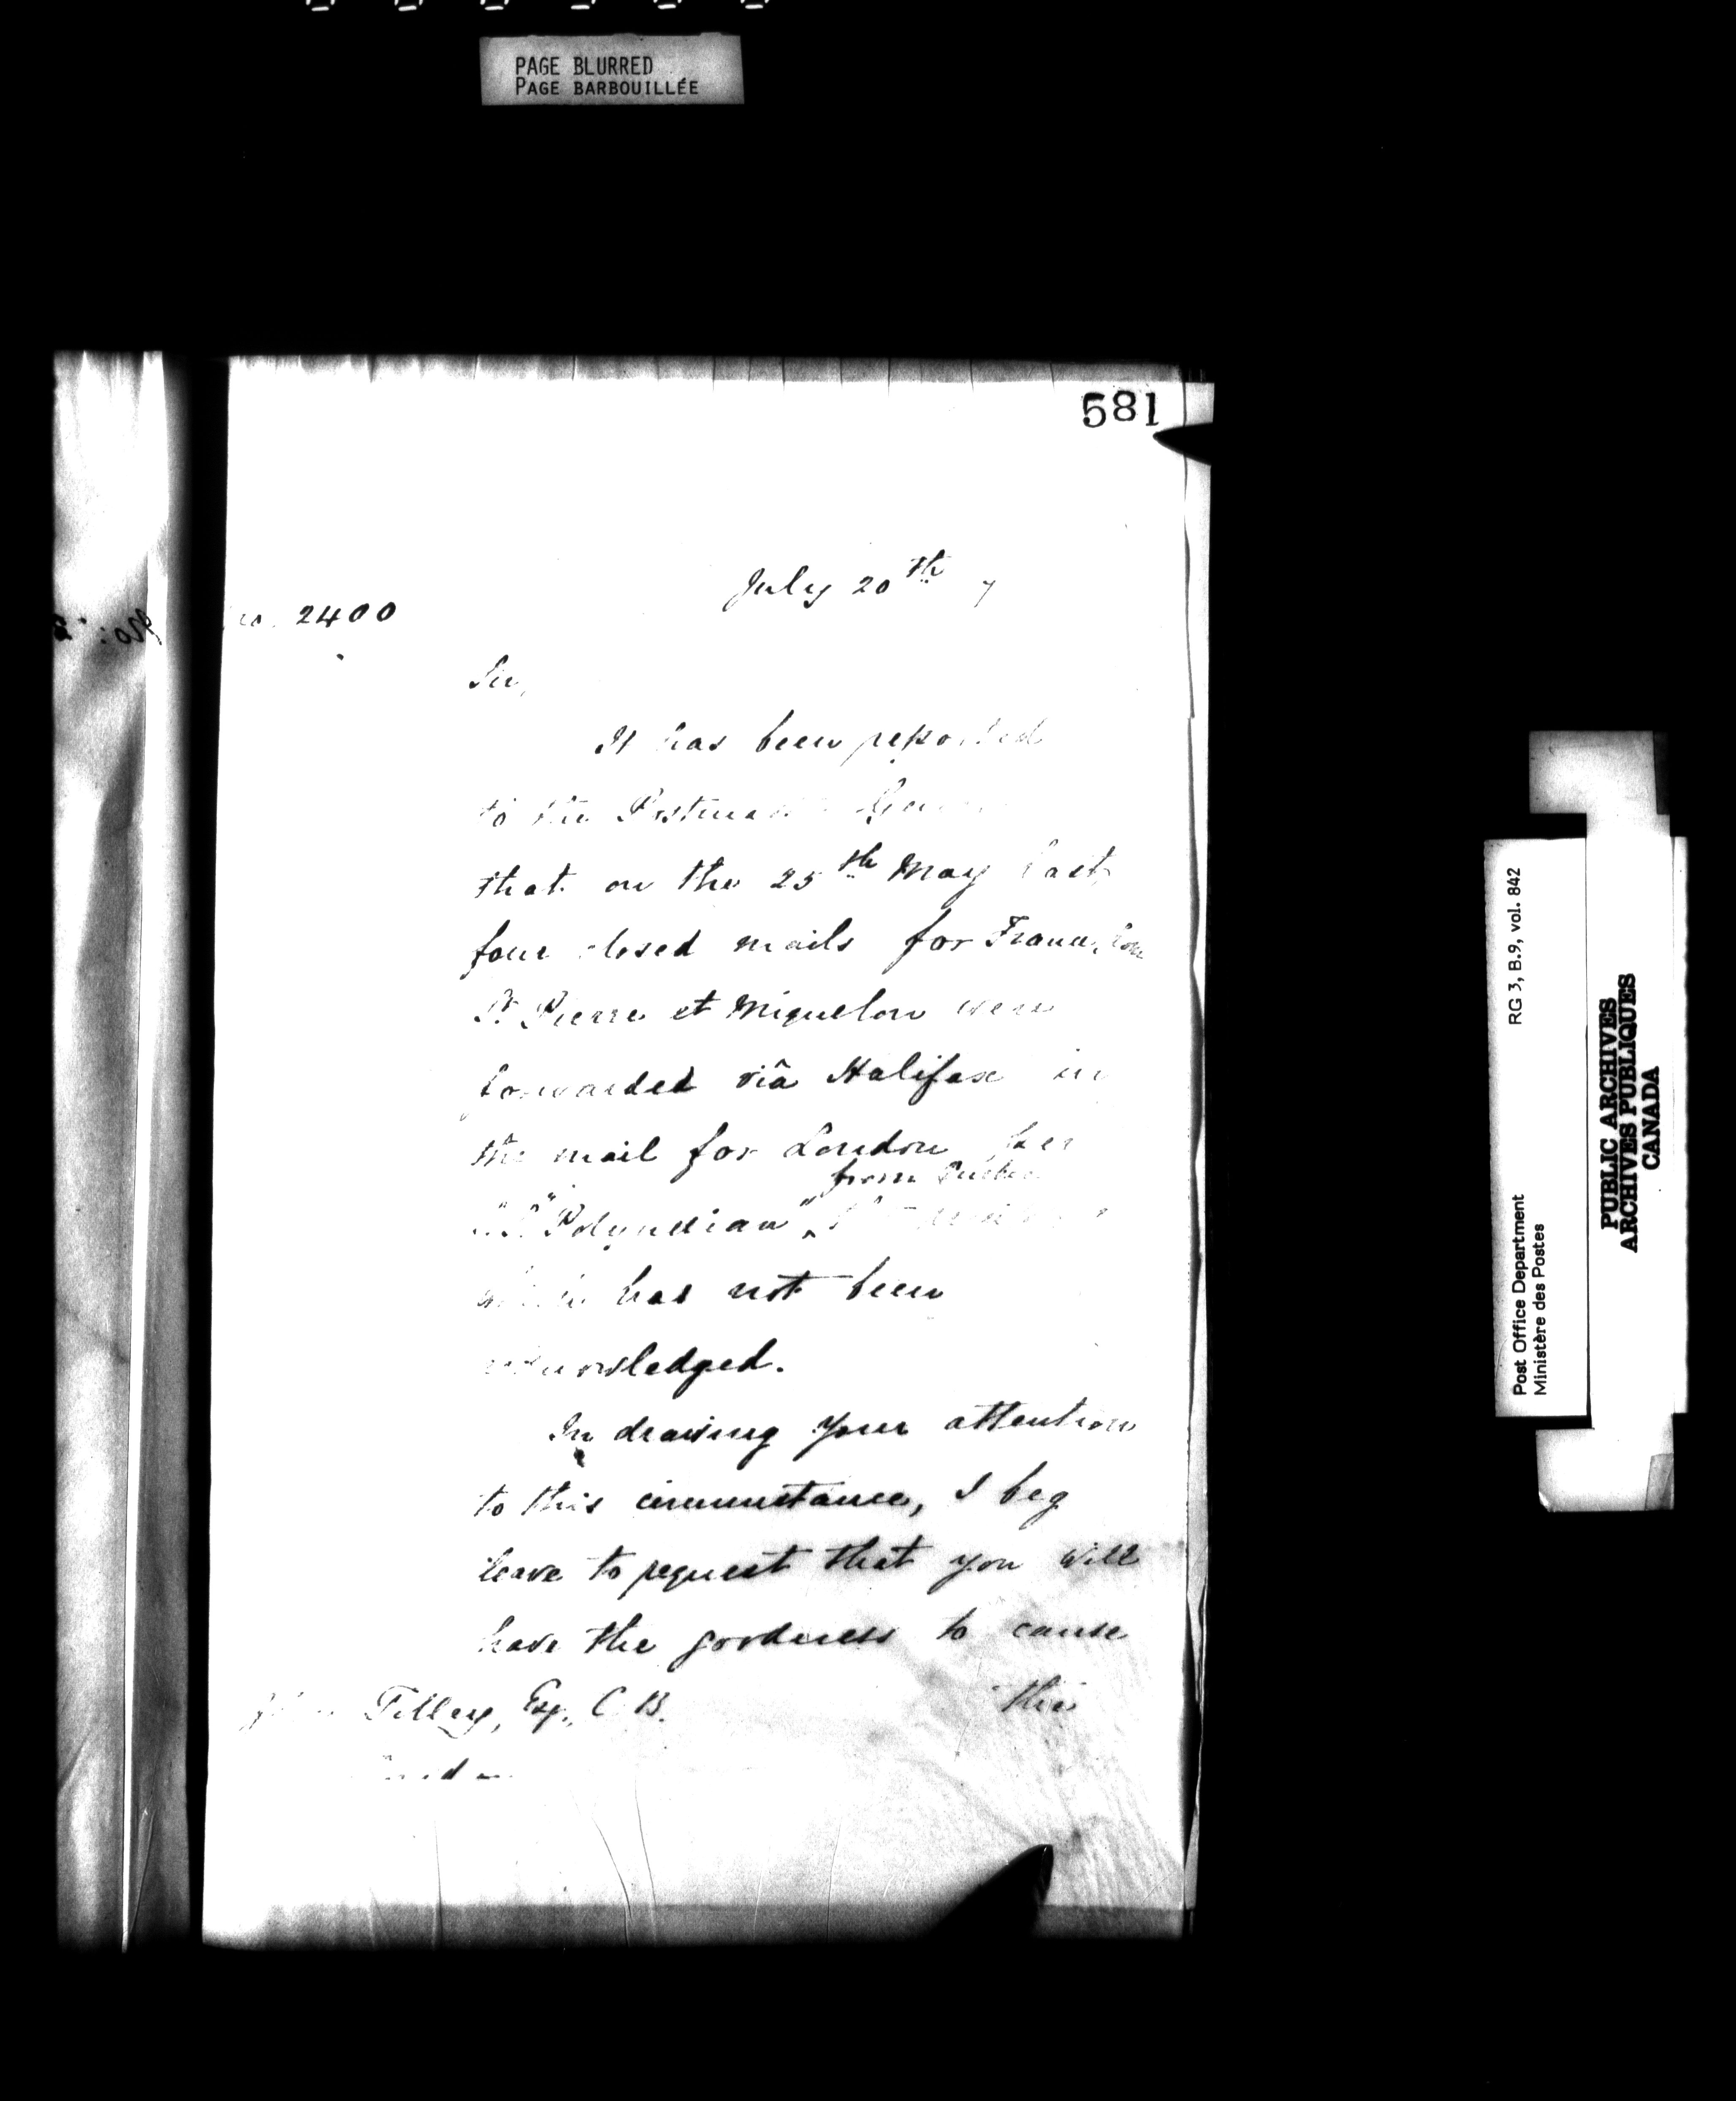 PAGE BLURRED
PAGE BARBOUILLÉE
581
July 20th 7
no. 2400
Sir,
It has been reported
to the Postmaster
that on the 25th May last,
four closed mails for France, from
St Pierre et Miquelon were
forwarded viâ Halifax in
the mail for London per
from Quebec
S.S. "Polynesian"
which has not been
acknowledged.
In drawing your attention
to this circumstance, I beg
leave to request that you will
have the goodness to cause
this
John Tilley, Esq., C.B.
London
RG 3, B.9, vol. 842
Post Office Department
Ministère des Postes
PUBLIC ARCHIVES
ARCHIVES PUBLIQUES
CANADA